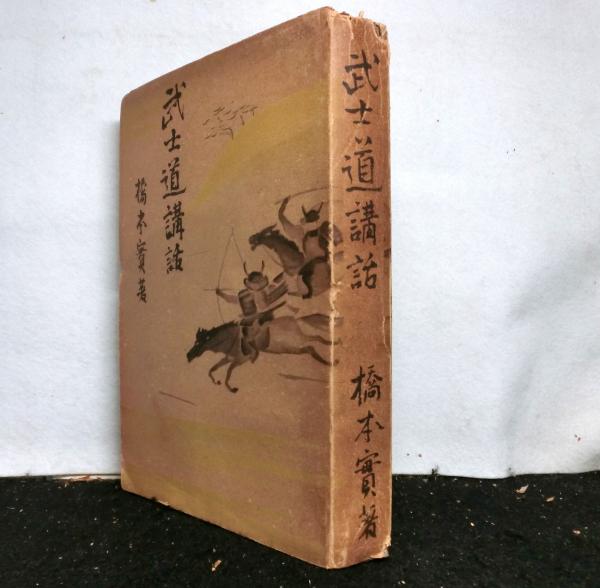 武士道講話
橋本實著
武士道講話
橋本實著